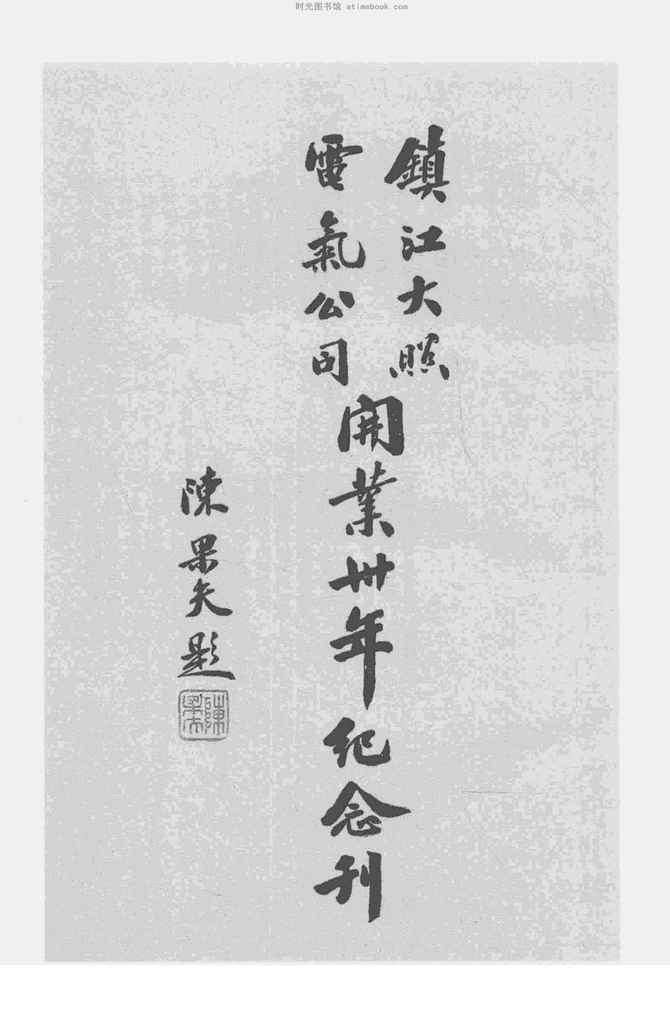 时光图书馆 atimebook.com
鎮江大照
電氣公司
開業卅年紀念刊
陳果夫題